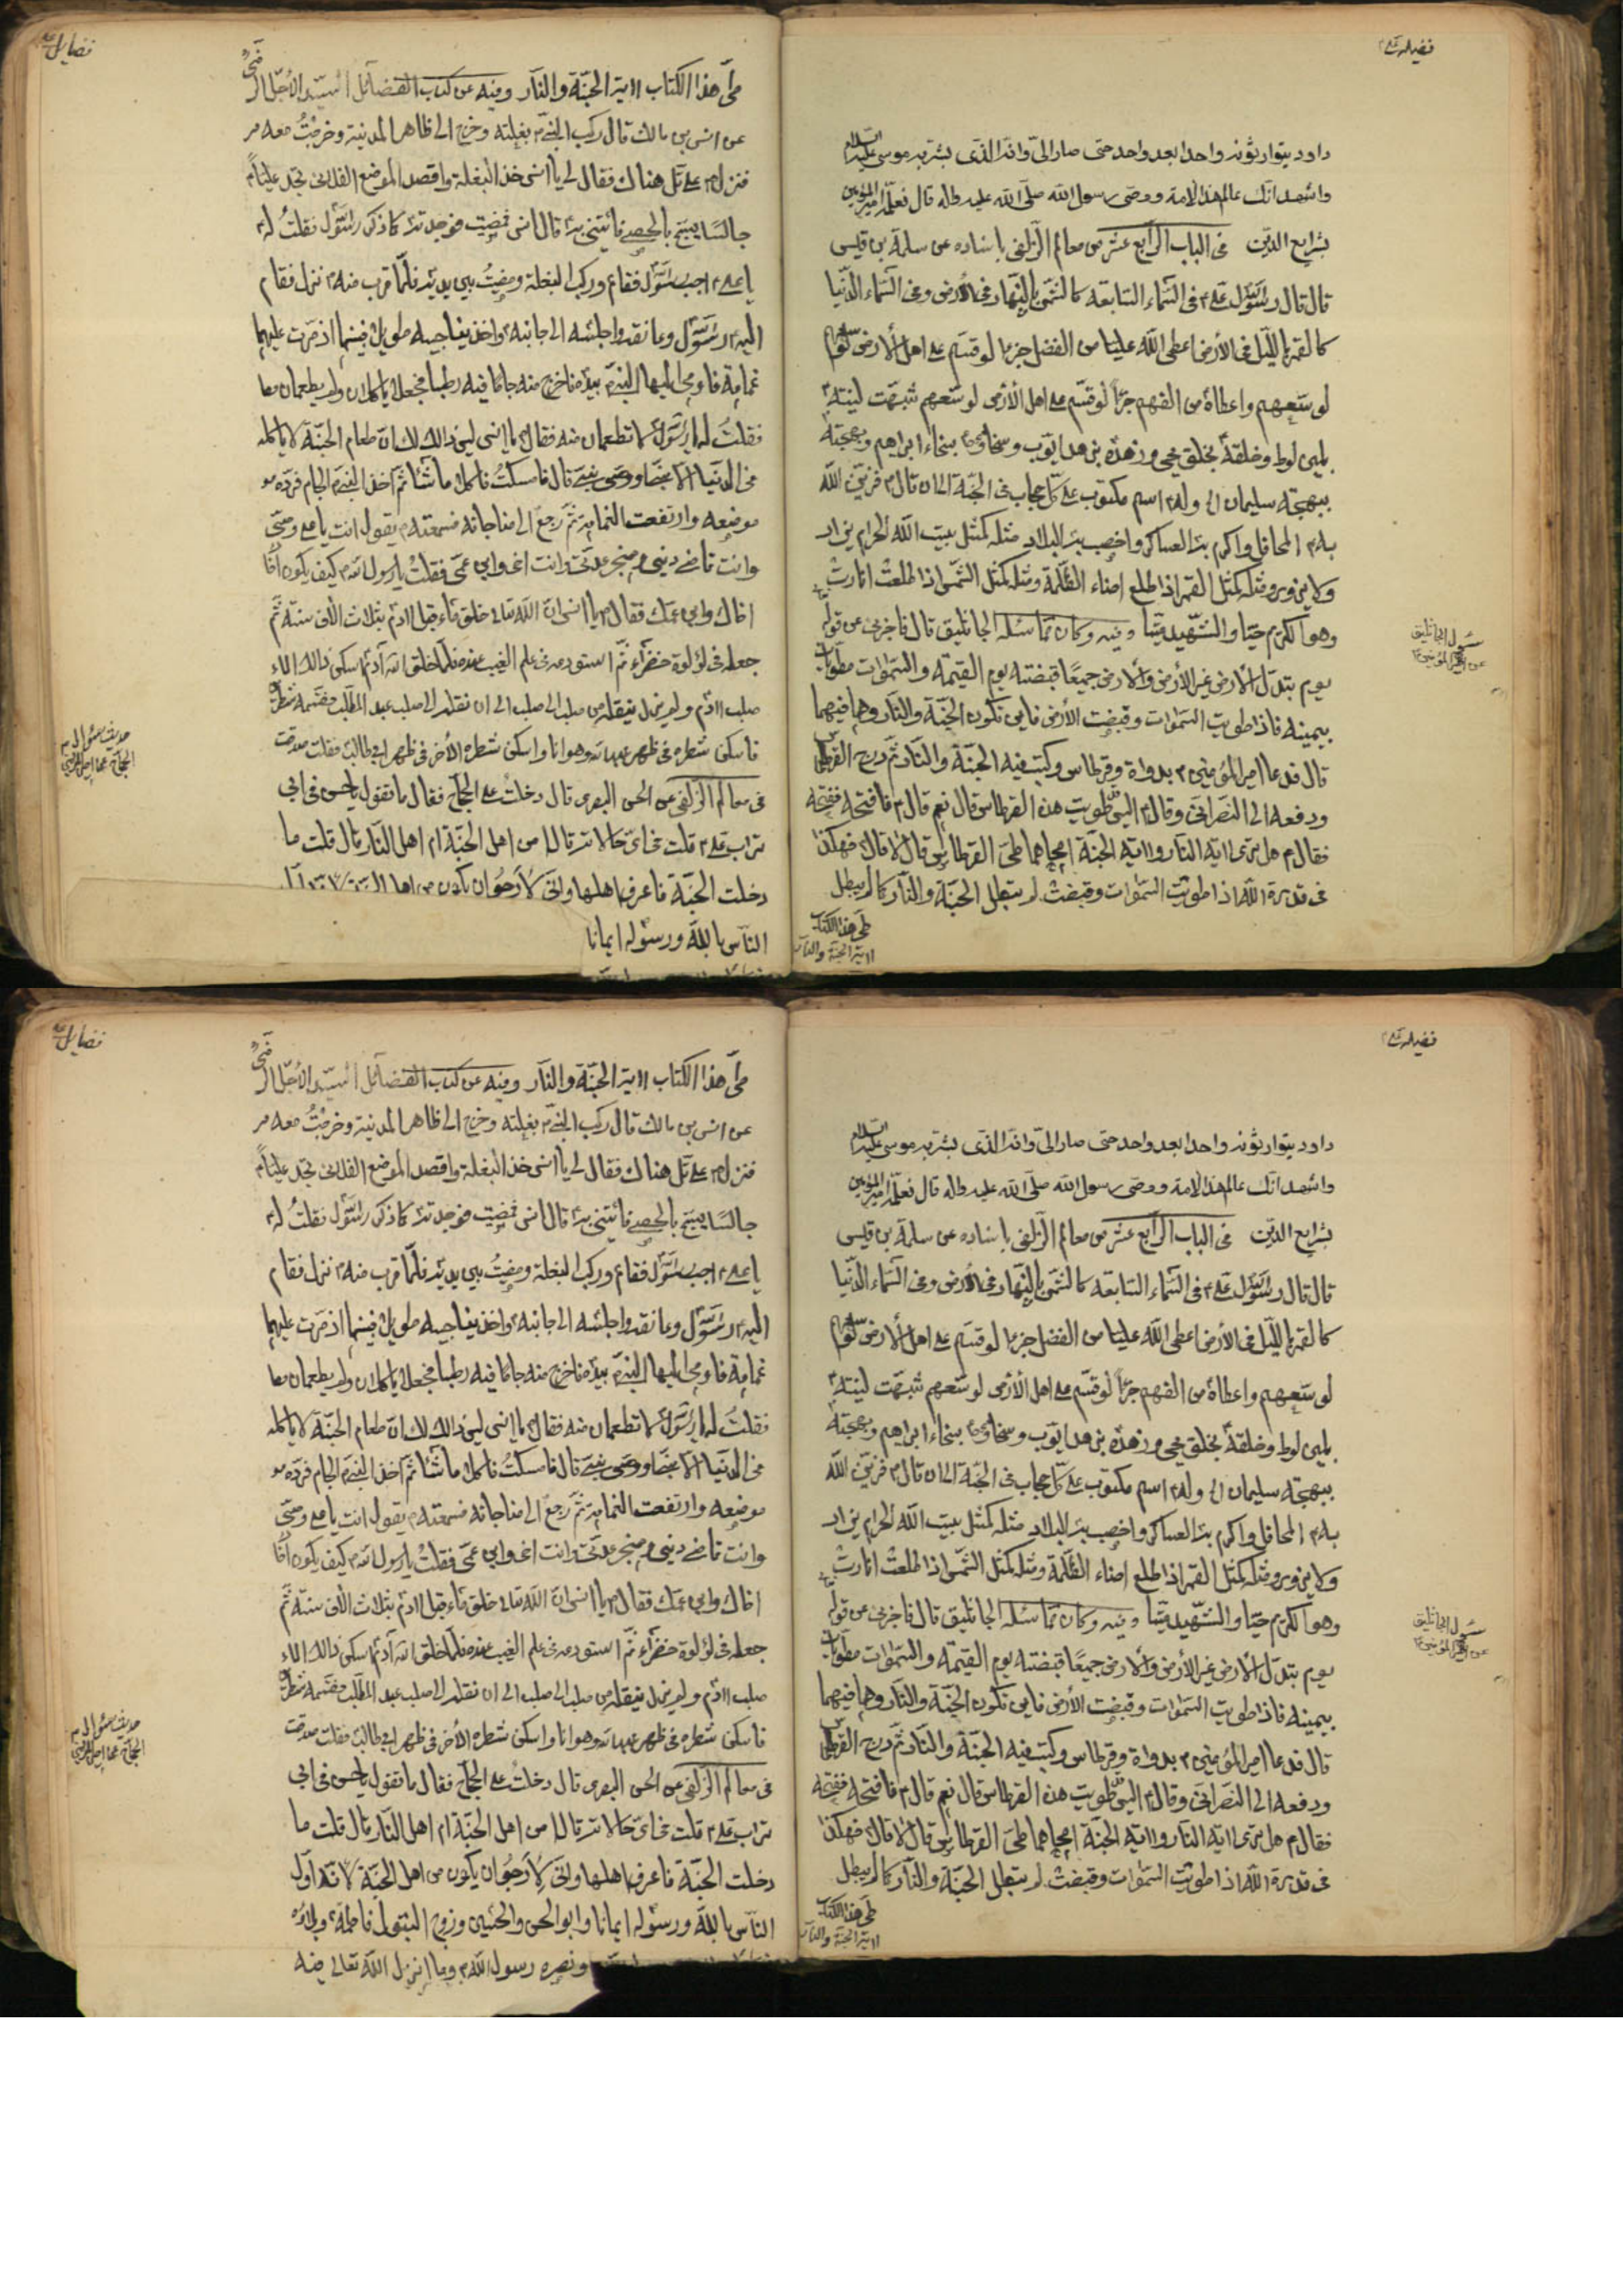 فضيلة علي
داود يتوارثونه واحدا بعد واحد حتى صار الىّ وانه الذى بشر به موسى عليه السلام
واشهد انك عالم هذا الامة ووصى رسول الله صلى الله عليه واله قال فعلمه امير المؤمنين
شرايع الدين فى الباب الرابع عشر من معالم الزلفى باسناده عن سلمة بن قيس
قال قال رسول الله على فى السماء السابعة كالشمس بالنهار فى الارض وفى السماء الدنيا
كالقمر بالليل فى الأرض اعطى الله عليا من الفضل جزءا لو قسم على اهل الأرض لوسعهم
واعطاه من الفهم جزءا لو قسم على اهل الأرض لوسعهم شبهت لينته
بلين لوط وخلقه بخلق يحيى وزهده بزهد ايوب وسخاوته بسخاء ابراهيم وبهجته
ببهجة سليمان الى وله اسم مكتوب على كل حجاب فى الجنة الى ان قال فزين الله
به المحافل واكرم به العساكر واخصب به البلاد مثله كمثل بيت الله الحرام يزار
ولا يزور ومثله كمثل القمر اذا طلع اضاء الظلمة ومثله كمثل الشمس اذا طلعت انارت
وفيه وكان مما سئله الجاثليق قال فاخبرنى عن قوله
يوم تبدل الأرض غير الأرض والأرض جميعا قبضته يوم القيمة والسموات مطويات
بيمينه فاذا طويت السموات وقبضت الأرض فاين تكون الجنة والنار وهما فيهما
قال فدعا امير المؤمنين بدواة وقرطاس وكتب فيه الجنة والنار ثم درج القرطاس
ودفعه الى النصرانى وقال اليس طويت هذه القرطاس قال نعم قال فافتحه ففتحه
فقال هل ترى اية النار واية الجنة امحاهما طى القرطاس قال لا قال فهكذا
فى قدرة الله اذا طويت السموات وقبضت لم تبطل الجنة والنار كما لم يبطل
طى هذا الكتاب
اية الجنة والنار
سئول الجاثليق
عن امير المؤمنين
فضايل
طى هذا الكتاب اية الجنة والنار وفيه عن كتاب الفضائل السيد الأجل الرضى
عن انس بن مالك قال ركب النبى بغلته وخرج الى ظاهر المدينة وخرجت معه
فنزل على تل هناك فقال لى يا انس خذ البغلة واقصد الموضع الفلانى تجد عليا
جالسا يسبح بالحصى فائتنى به قال انس فمضيت فوجدته كما ذكر رسول الله فقلت له
يا على اجب رسول الله فقام وركب البغلة ومضيت بين يديه فلما قرب منه نزل فقام
اليه رسول الله وعانقه واجلسه الى جانبه واخذ يناجيه طويلا فبينما اذ مرت عليهما
غمامة فاومى اليها النبى بيده فاخرج منه جاما فيه رطبا فجعلا ياكلان ولم يطعمان
فقلت له يا رسول الله لا تطعمان منه فقال يا انس ليس ذالك لك ان طعام الجنة لا ياكله
فى الدنيا الا نبى او وصى نبى قال فامسكت فاكلا ما شاء ثم اخذ النبى الجام فرده
موضعه وارتفعت الغمامة ثم رجع الى مناجاته فسمعته يقول انت يا على وصيى
وانت قاضى دينى ومنجز عدتى وانت اخى وابن عمى فقلت يا رسول الله كيف يكون
اخاك وابن عمك فقال يا انس ان الله تعالى خلق ماء قبل ادم بثلاث الاف سنة ثم
جعله فى لؤلؤة خضراء ثم استودعه فى علم الغيب عنده فلما خلق الله آدم اسكن ذالك الماء
صلب ادم ولم يزل ينقله من صلب الى صلب الى ان نقله الى صلب عبد المطلب فقسمه شطرين
فاسكن شطره فى ظهر عبد الله وهو انا واسكن شطره الأخر فى ظهر ابى طالب فقلت صدقت
فى معالم الزلفى عن الحسن البصرى قال دخلت على الحجاج فقال ما تقول يا حسن فى ابى
تراب على قلت فى اى حالاته قال امن اهل الجنة ام اهل النار قال قلت ما
دخلت الجنة فاعرف اهلها وانى لأرجو ان يكون من اهل
الناس بالله ورسوله ايمانا
حديث سئوال
الحجاج عما
فضيلة علي
داود يتوارثونه واحدا بعد واحد حتى صار الىّ وانه الذى بشر به موسى عليه السلام
واشهد انك عالم هذا الامة ووصى رسول الله صلى الله عليه واله قال فعلمه امير المؤمنين
شرايع الدين فى الباب الرابع عشر من معالم الزلفى باسناده عن سلمة بن قيس
قال قال رسول الله على فى السماء السابعة كالشمس بالنهار فى الارض وفى السماء الدنيا
كالقمر بالليل فى الأرض اعطى الله عليا من الفضل جزءا لو قسم على اهل الأرض لوسعهم
واعطاه من الفهم جزءا لو قسم على اهل الأرض لوسعهم شبهت لينته
بلين لوط وخلقه بخلق يحيى وزهده بزهد ايوب وسخاوته بسخاء ابراهيم وبهجته
ببهجة سليمان الى وله اسم مكتوب على كل حجاب فى الجنة الى ان قال فزين الله
به المحافل واكرم به العساكر واخصب به البلاد مثله كمثل بيت الله الحرام يزار
ولا يزور ومثله كمثل القمر اذا طلع اضاء الظلمة ومثله كمثل الشمس اذا طلعت انارت
وفيه وكان مما سئله الجاثليق قال فاخبرنى عن قوله
يوم تبدل الأرض غير الأرض والأرض جميعا قبضته يوم القيمة والسموات مطويات
بيمينه فاذا طويت السموات وقبضت الأرض فاين تكون الجنة والنار وهما فيهما
قال فدعا امير المؤمنين بدواة وقرطاس وكتب فيه الجنة والنار ثم درج القرطاس
ودفعه الى النصرانى وقال اليس طويت هذه القرطاس قال نعم قال فافتحه ففتحه
فقال هل ترى اية النار واية الجنة امحاهما طى القرطاس قال لا قال فهكذا
فى قدرة الله اذا طويت السموات وقبضت لم تبطل الجنة والنار كما لم يبطل
طى هذا الكتاب
اية الجنة والنار
سئول الجاثليق
عن امير المؤمنين
فضايل
طى هذا الكتاب اية الجنة والنار وفيه عن كتاب الفضائل السيد الأجل الرضى
عن انس بن مالك قال ركب النبى بغلته وخرج الى ظاهر المدينة وخرجت معه
فنزل على تل هناك فقال لى يا انس خذ البغلة واقصد الموضع الفلانى تجد عليا
جالسا يسبح بالحصى فائتنى به قال انس فمضيت فوجدته كما ذكر رسول الله فقلت له
يا على اجب رسول الله فقام وركب البغلة ومضيت بين يديه فلما قرب منه نزل فقام
اليه رسول الله وعانقه واجلسه الى جانبه واخذ يناجيه طويلا فبينما اذ مرت عليهما
غمامة فاومى اليها النبى بيده فاخرج منه جاما فيه رطبا فجعلا ياكلان ولم يطعمان
فقلت له يا رسول الله لا تطعمان منه فقال يا انس ليس ذالك لك ان طعام الجنة لا ياكله
فى الدنيا الا نبى او وصى نبى قال فامسكت فاكلا ما شاء ثم اخذ النبى الجام فرده
موضعه وارتفعت الغمامة ثم رجع الى مناجاته فسمعته يقول انت يا على وصيى
وانت قاضى دينى ومنجز عدتى وانت اخى وابن عمى فقلت يا رسول الله كيف يكون
اخاك وابن عمك فقال يا انس ان الله تعالى خلق ماء قبل ادم بثلاث الاف سنة ثم
جعله فى لؤلؤة خضراء ثم استودعه فى علم الغيب عنده فلما خلق الله آدم اسكن ذالك الماء
صلب ادم ولم يزل ينقله من صلب الى صلب الى ان نقله الى صلب عبد المطلب فقسمه شطرين
فاسكن شطره فى ظهر عبد الله وهو انا واسكن شطره الأخر فى ظهر ابى طالب فقلت صدقت
فى معالم الزلفى عن الحسن البصرى قال دخلت على الحجاج فقال ما تقول يا حسن فى ابى
تراب على قلت فى اى حالاته قال امن اهل الجنة ام اهل النار قال قلت ما
دخلت الجنة فاعرف اهلها وانى لأرجو ان يكون من اهل الجنة لانه اول
الناس بالله ورسوله ايمانا وابو الحسن والحسين وزوج البتول فاطمة وبلاؤه
ونصره رسول الله وما انزل الله تعالى فيه
حديث سئوال
الحجاج عما